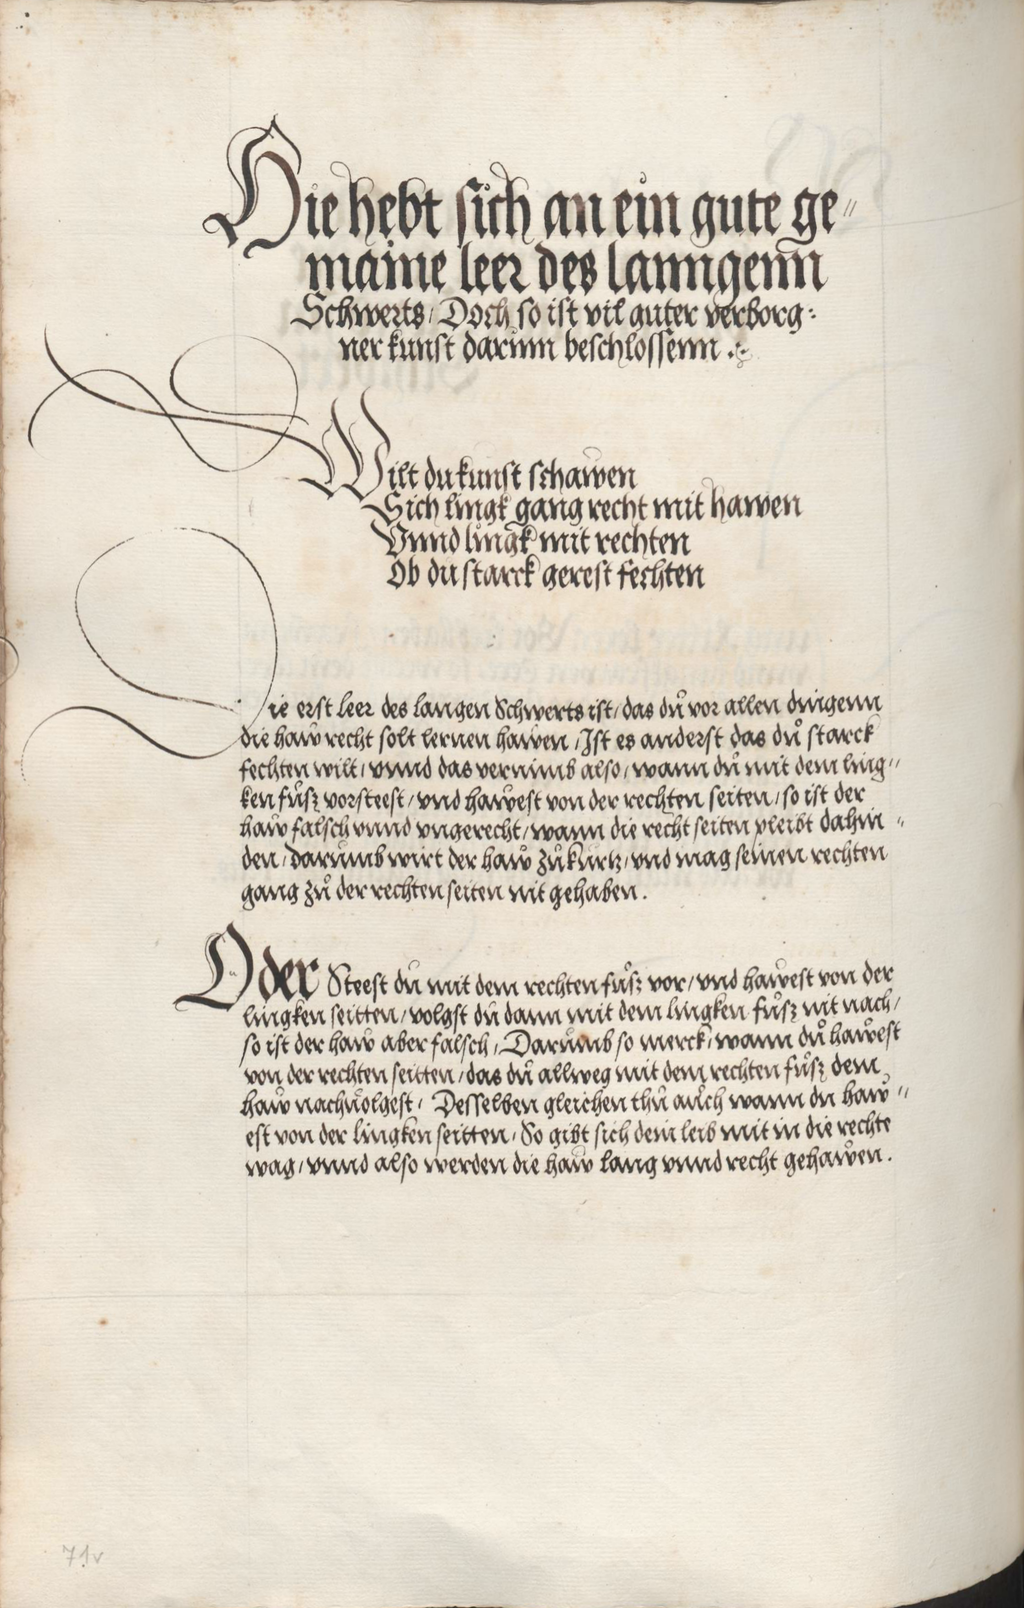 Hie hebt sich an ein gute ge„
maine leer des lanngenn
Schwerts / Doch so ist vil guter verborg:
ner kunst darinn beschlossenn .
Wilt du kunst schawen
Sich lingk gang recht mit hawen
Vnnd lingk mit rechten
Ob du starck gerest fechten
Die erst leer des langen Schwerts ist / das dů vor allen dingenn
die haw recht solt lernen hawen / Ist es anderst das dů starck
fechten wilt / vnnd das vernimb also / wann dů mit dem ling„
ken fůsz vorsteest / vnd hawest von der rechten seiten / so ist der
haw falsch vnnd vngerecht / wann die recht seiten pleibt dahin„
den / darumb wirt der haw zůkurtz / vnd mag seinen rechten
gang zů der rechten seiten nit gehaben .
Oder Steest du mit dem rechten fůsz vor / vnd hawest von der
lingken seitten / volgst du dann mit dem lingken fůsz nit nach /
so ist der haw aber falsch / Darumb so merck / wann dů hawest
von der rechten seitten / das dů allweg mit dem rechten fůsz dem
haw nachuolgest / Desselben gleichen thů auch wann du haw„
est von der lingken seitten / So gibt sich dein leib mit in die rechte
wag / vnnd also werden die haw lang vnnd recht gehawen .
71v